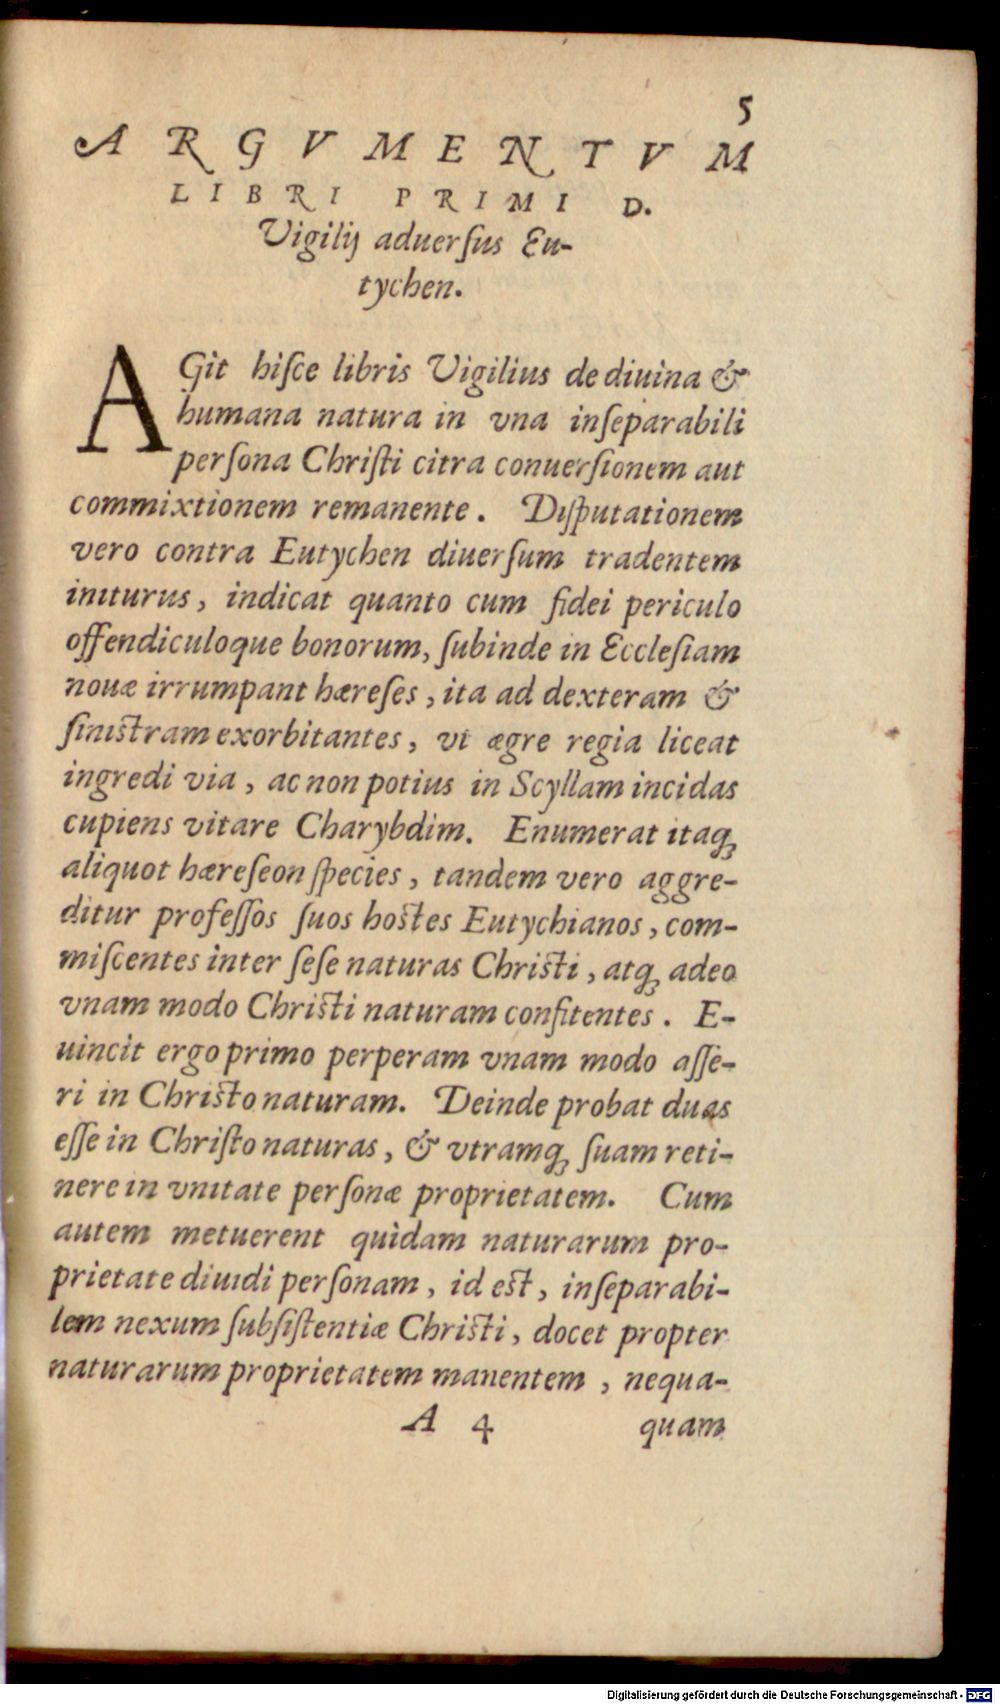 5
ARGVMENTVM
LIBRI PRIMI D.
Vigilij aduerſus Eu-
tychen.
AGit hiſce libris Vigilius de diuina &
humana natura in vna inſeparabili
perſona Chriſti citra conuerſionem aut
commixtionem remanente. Diſputationem
vero contra Eutychen diuerſum tradentem
initurus, indicat quanto cum fidei periculo
offendiculoque bonorum, ſubinde in Eccleſiam
nouæ irrumpant hæreſes, ita ad dexteram &
ſiniſtram exorbitantes, vt ægre regia liceat
ingredi via, ac non potius in Scyllam incidas
cupiens vitare Charybdim. Enumerat itaq;
aliquot hæreſeon ſpecies, tandem vero aggre-
ditur profeſſos ſuos hoſtes Eutychianos, com-
miſcentes inter ſeſe naturas Chriſti, atq; adeo
vnam modo Chriſti naturam confitentes. E-
uincit ergo primo perperam vnam modo aſſe-
ri in Chriſto naturam. Deinde probat duas
eſſe in Chriſto naturas, & vtramq; ſuam reti-
nere in vnitate perſonæ proprietatem. Cum
autem metuerent quidam naturarum pro-
prietate diuidi perſonam, id eſt, inſeparabi-
lem nexum ſubſiſtentiæ Chriſti, docet propter
naturarum proprietatem manentem, nequa-
A 4 quam
Digitalisierung gefördert durch die Deutsche Forschungsgemeinschaft - DFG